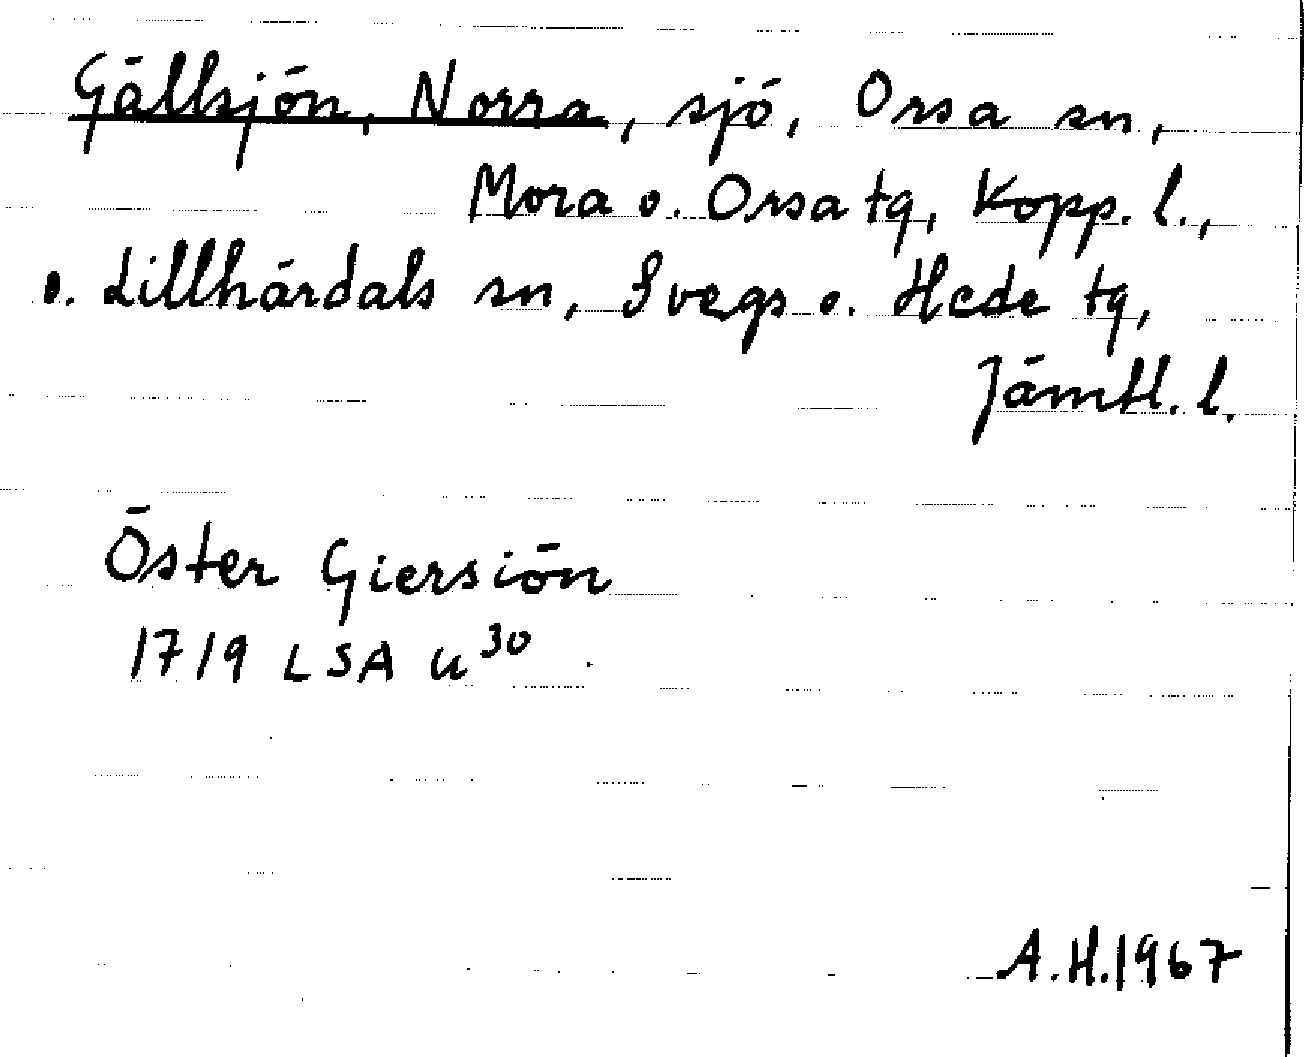 Gällsjön, Norra, sjö, Orsa sn,
Mora o. Orsa tg, Kopp. l.,
o. Lillhärdals sn, Svegs o. Hede tg,
Jämtl. l.
Öster Giersiön
1719 LSA u 30
A.H. 1967